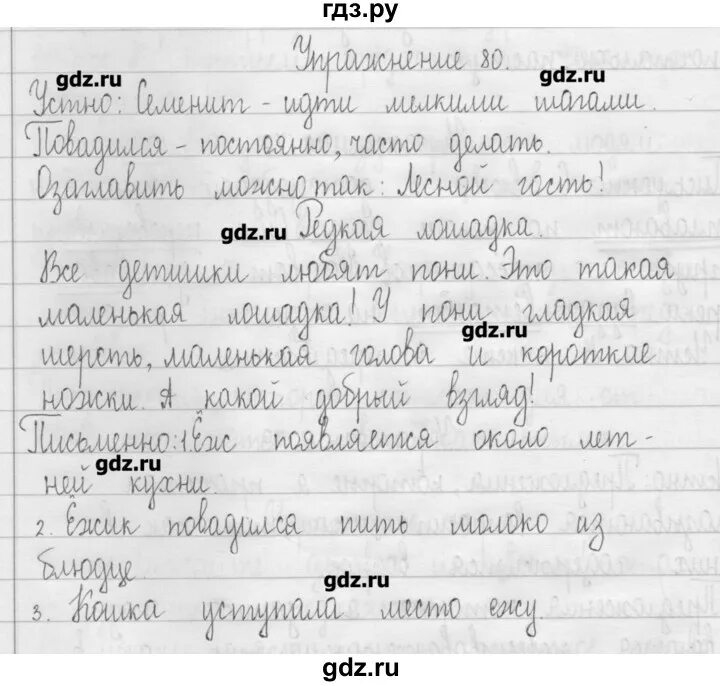 гдз.ру
Упражнение 80.
gdz.ru
gdz.ru
Устно: Семенит - идти мелкими шагами.
Повадился - постоянно, часто делать.
gdz.ru
Озаглавить можно так: Лесной гость!
gdz.ru
Редкая лошадка.
Все детишки любят пони. Это такая
маленькая лошадка! У пони гладкая
gdz.ru
шерсть, маленькая голова и короткие
ножки. А какой добрый взгляд!
gdz.ru
Письменно: 1. Ёж появляется около лет-
gdz.ru
ней кухни.
2. Ёжик повадился пить молоко из
блюдце
gdz.ru
3. Кошка уступала место ежу.
gdz.ru